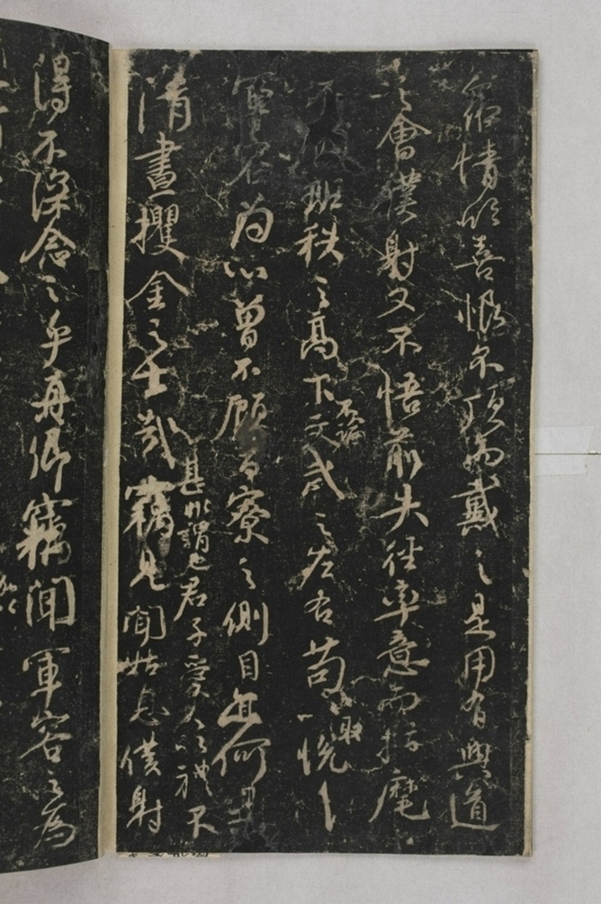 衆情欣喜恨不頂而戴之是用有興道
之會僕射又不悟前失徑率意而指麾
不顧班秩之高下不論文武之左右苟以取悅
軍容為心曾不顧百寮之側目亦何異
清晝攫金之士哉甚非謂也君子愛人以禮不竊見聞姑息僕射
得不深念之乎真卿竊聞軍容之為